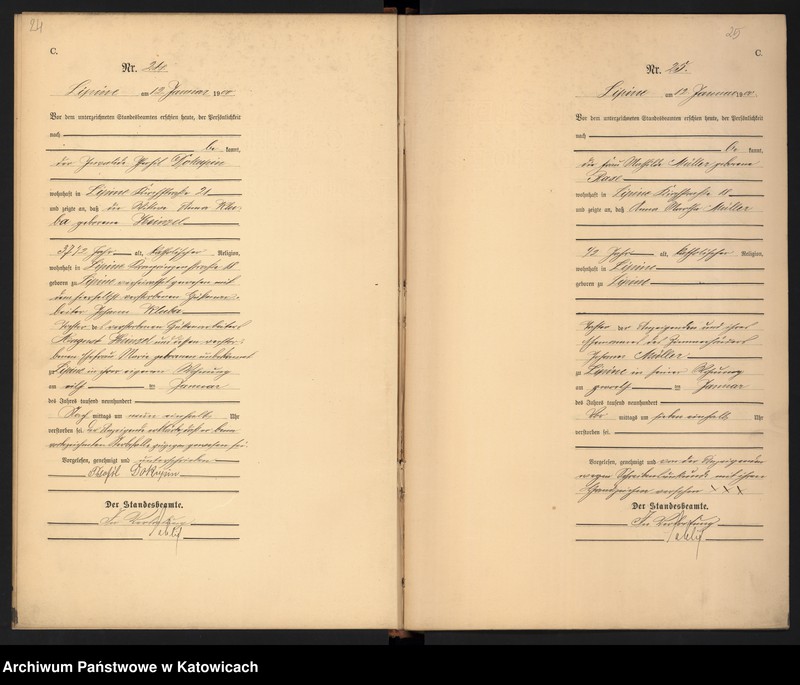 24
C.
Nr. 24.
Lipine am 12. Januar 1900
Vor dem unterzeichneten Standesbeamten erschien heute, der Persönlichkeit
nach
be kannt,
der Invalide Theofil Dokupin
wohnhaft in Lipine Kirchstraße 21
und zeigte an, daß die Witwe Anna
geborene
Jahr alt, katholischer Religion,
wohnhaft in Lipine
geboren zu Lipine verheirathet gewesen mit
dem hierselbst verstorbenen Hüttenar-
beiter Johann
Tochter des verstorbenen Hüttenarbeiters
August und dessen verstor-
benen Ehefrau Marie geborenen unbekannt
zu Lipine in ihrer eigenen Wohnung
am elf ten Januar
des Jahres tausend neunhundert
Nach mittags um neun einhalb Uhr
verstorben sei. Der Anzeigende erklärte, daß er beim
vorbezeichneten Sterbefalle zugegen gewesen sei.
Vorgelesen, genehmigt und unterschrieben
Theofil Dokupin
Der Standesbeamte.
In Vertretung
25
C.
Nr. 25.
Lipine am 12. Januar 1900.
Vor dem unterzeichneten Standesbeamten erschien heute, der Persönlichkeit
nach
be kannt,
die Frau Mathilde Müller geborene
wohnhaft in Lipine Kirchstraße 11
und zeigte an, daß Anna Martha Müller
1/2 Jahr alt, katholischer Religion,
wohnhaft in Lipine
geboren zu Lipine
Tochter der Anzeigenden und ihres
Ehemannes des Zimmerhäuers
Johann Müller
zu Lipine in seiner Wohnung
am zwölf ten Januar
des Jahres tausend neunhundert
Vor mittags um sieben einhalb Uhr
verstorben sei.
Vorgelesen, genehmigt und von der Anzeigenden
wegen Schreibensunkunde mit ihrem
Handzeichen versehen XXX
Der Standesbeamte.
In Vertretung
Archiwum Państwowe w Katowicach